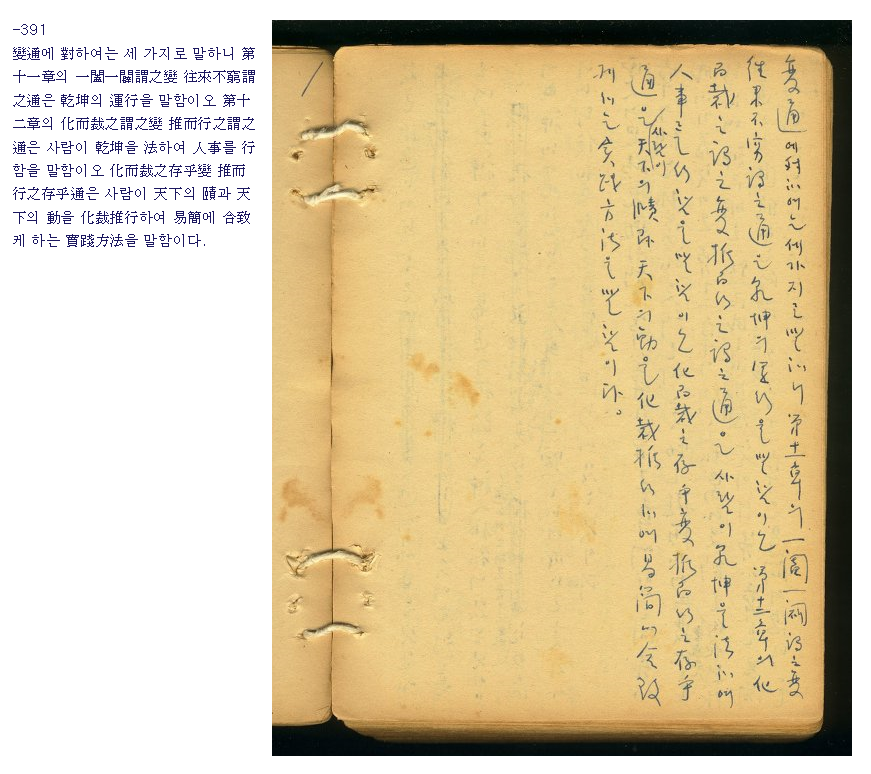 -391
變通에 對하여는 세 가지로 말하니 第
十一章의 一闔一闢謂之變 往來不窮謂
之通은 乾坤의 運行을 말함이오 第十
二章의 化而裁之謂之變 推而行之謂之
通은 사람이 乾坤을 法하여 人事를 行
함을 말함이오 化而裁之存乎變 推而
行之存乎通은 사람이 天下의 賾과 天
下의 動을 化裁推行하여 易簡에 合致
케 하는 實踐方法을 말함이다.
變通에 對하여는 세가지로 말하니 第十一章의 一闔一闢謂之變
往來不窮謂之通은 乾坤의 運行을 말함이오 第十二章의 化
而裁之謂之變 推而行之謂之通은 사람이 乾坤을 法하여
人事를 行함을 말함이오 化而裁之存乎變 推而行之存乎
通은 사람이 天下의 賾과 天下의 動을 化裁推行하여 易簡에 合致
케하는 實踐方法을 말함이다。